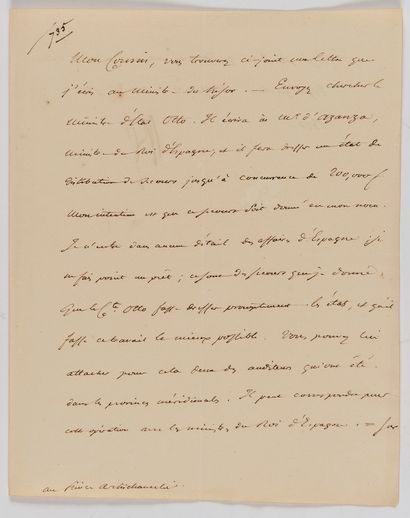 735
Mon Cousin, vous trouverez ci-joint une lettre que
j'écris au Ministre du trésor. — Envoyez chercher le
Ministre d'État Otto. Il écrira à Mr. d'Azanza,
Ministre du Roi d'Espagne, et il fera dresser un état de
distribution de secours jusqu'à concurrence de 200,000 f
Mon intention est que ce secours soit donné en mon nom.
Je n'entre dans aucun détail des affaires d'Espagne; je
ne fais point un prêt; ce sont des secours que je donne.
Que le Cte. Otto fasse dresser promptement les états, et qu'il
fasse ce travail le mieux possible. Vous pouvez lui
attacher pour cela deux des auditeurs qui ont été
dans les provinces méridionales. Il peut correspondre pour
cette opération avec les ministres du Roi d'Espagne. — Sur
au Prince Archichancelier